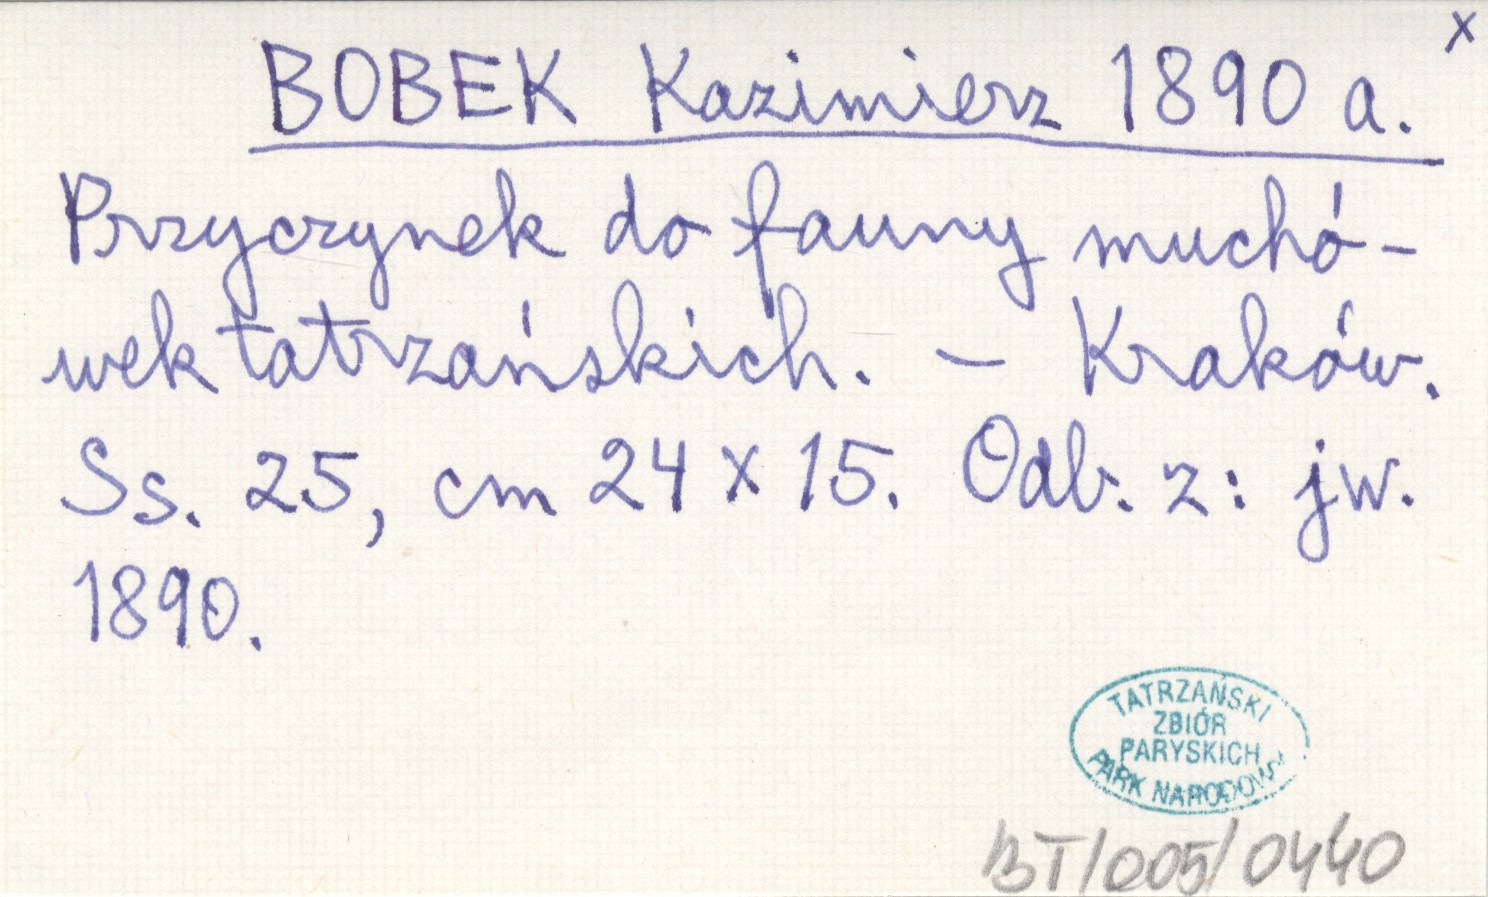 x
BOBEK Kazimierz 1890 a.
Przyczynek do fauny muchó-
wek tatrzańskich. - Kraków.
Ss. 25, cm 24 x 15. Odb. z: jw.
1890.
TATRZAŃSKI
ZBIÓR
PARYSKICH
PARK NARODOWY
BT/005/0440